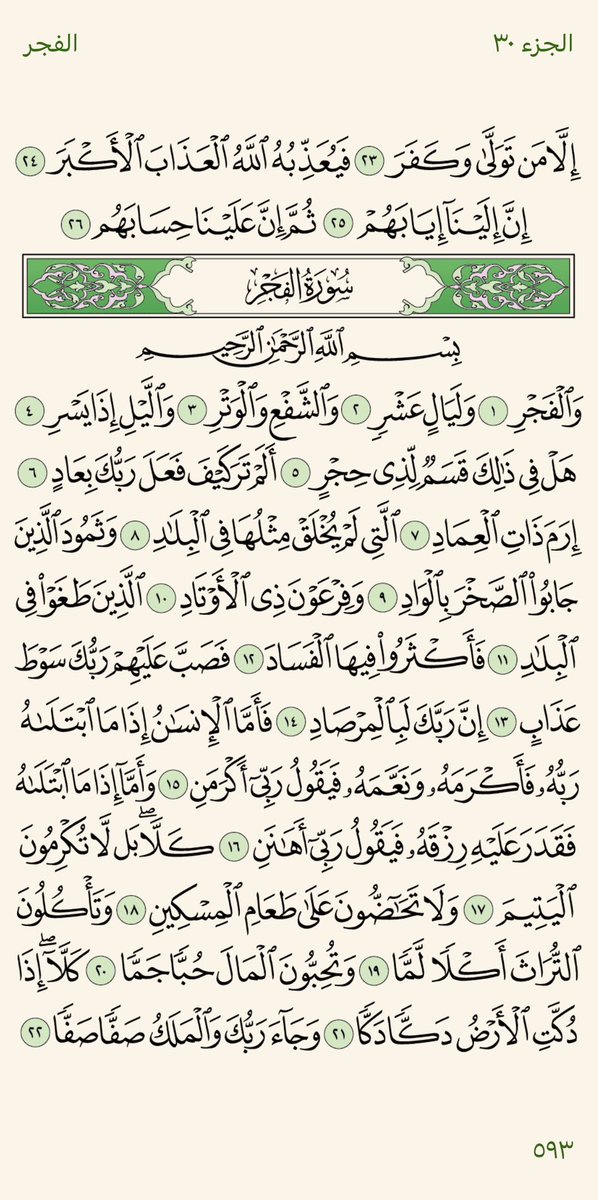 الجزء ٣٠
الفجر
إِلَّا مَن تَوَلَّىٰ وَكَفَرَ ٢٣ فَيُعَذِّبُهُ ٱللَّهُ ٱلْعَذَابَ ٱلْأَكْبَرَ ٢٤
إِنَّ إِلَيْنَآ إِيَابَهُمْ ٢٥ ثُمَّ إِنَّ عَلَيْنَا حِسَابَهُم ٢٦
سُورَةُ الفَجْرِ
بِسْمِ ٱللَّهِ ٱلرَّحْمَٰنِ ٱلرَّحِيمِ
وَٱلْفَجْرِ ١ وَلَيَالٍ عَشْرٍ ٢ وَٱلشَّفْعِ وَٱلْوَتْرِ ٣ وَٱلَّيْلِ إِذَا يَسْرِ ٤
هَلْ فِى ذَٰلِكَ قَسَمٌ لِّذِى حِجْرٍ ٥ أَلَمْ تَرَ كَيْفَ فَعَلَ رَبُّكَ بِعَادٍ ٦
إِرَمَ ذَاتِ ٱلْعِمَادِ ٧ ٱلَّتِى لَمْ يُخْلَقْ مِثْلُهَا فِى ٱلْبِلَٰدِ ٨ وَثَمُودَ ٱلَّذِينَ
جَابُوا۟ ٱلصَّخْرَ بِٱلْوَادِ ٩ وَفِرْعَوْنَ ذِى ٱلْأَوْتَادِ ١٠ ٱلَّذِينَ طَغَوْا۟ فِى
ٱلْبِلَٰدِ ١١ فَأَكْثَرُوا۟ فِيهَا ٱلْفَسَادَ ١٢ فَصَبَّ عَلَيْهِمْ رَبُّكَ سَوْطَ
عَذَابٍ ١٣ إِنَّ رَبَّكَ لَبِٱلْمِرْصَادِ ١٤ فَأَمَّا ٱلْإِنسَٰنُ إِذَا مَا ٱبْتَلَىٰهُ
رَبُّهُۥ فَأَكْرَمَهُۥ وَنَعَّمَهُۥ فَيَقُولُ رَبِّىٓ أَكْرَمَنِ ١٥ وَأَمَّآ إِذَا مَا ٱبْتَلَىٰهُ
فَقَدَرَ عَلَيْهِ رِزْقَهُۥ فَيَقُولُ رَبِّىٓ أَهَٰنَنِ ١٦ كَلَّا ۖ بَل لَّا تُكْرِمُونَ
ٱلْيَتِيمَ ١٧ وَلَا تَحَٰٓضُّونَ عَلَىٰ طَعَامِ ٱلْمِسْكِينِ ١٨ وَتَأْكُلُونَ
ٱلتُّرَاثَ أَكْلًا لَّمًّا ١٩ وَتُحِبُّونَ ٱلْمَالَ حُبًّا جَمًّا ٢٠ كَلَّآ ۖ إِذَا
دُكَّتِ ٱلْأَرْضُ دَكًّا دَكًّا ٢١ وَجَآءَ رَبُّكَ وَٱلْمَلَكُ صَفًّا صَفًّا ٢٢
٥٩٣